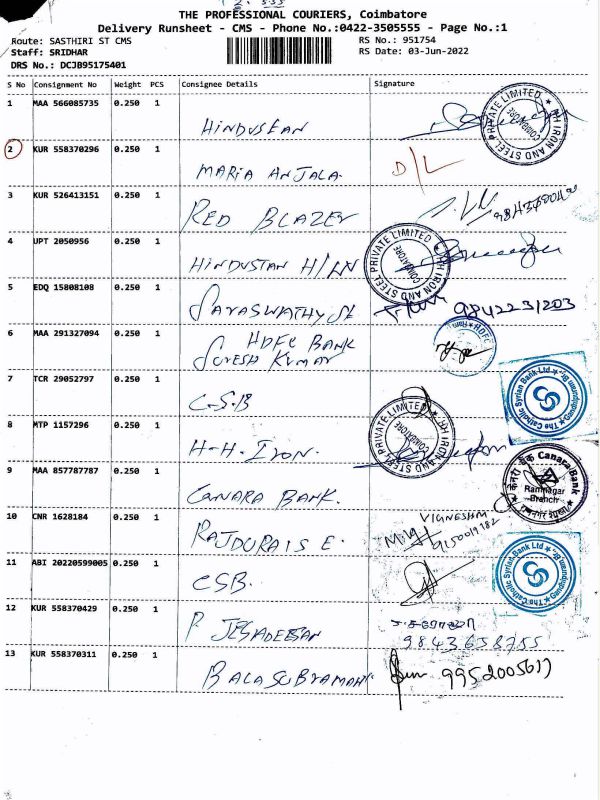 THE PROFESSIONAL COURIERS, Coimbatore
Delivery Runsheet - CMS - Phone No.:0422-3505555 - Page No.:1
Route: SASTHIRI ST CMS
RS No.: 951754
Staff: SRIDHAR
RS Date: 03-Jun-2022
DRS No.: DCJB95175401
S No Consignment No Weight PCS Consignee Details Signature
1 MAA 566085735 0.250 1
HINDUSTAN
PRIVATE LIMITED ★ HH IRON AND STEEL COIMBATORE
2 KUR 558370296 0.250 1
MARIA ANJALA.
D/L
3 KUR 526413151 0.250 1
RED BLAZER
4 UPT 2050956 0.250 1
HINDUSTAN
PRIVATE LIMITED ★ HH IRON AND STEEL COIMBATORE
5 EDQ 15808108 0.250 1
SARASWATHY
9842231203
6 MAA 291327094 0.250 1
HDFC BANK
SURESH KUMAR
HDFC
7 TCR 29052797 0.250 1
C-S-B
The Catholic Syrian Bank Ltd
8 MTP 1157296 0.250 1
H-H-IRON.
PRIVATE LIMITED ★ HH IRON AND STEEL COIMBATORE
9 MAA 857787787 0.250 1
CANARA BANK.
केनरा बैंक Canara Bank
Ramnagar
Branch
10 CNR 1628184 0.250 1
RAJDURAIS E.
VIGNESHM
9150019182
11 ABI 20220599005 0.250 1
CSB.
The Catholic Syrian Bank Ltd
12 KUR 558370429 0.250 1
P JEGADEESAN
9843658755
13 KUR 558370311 0.250 1
BALASUBRAMANI
9952005617